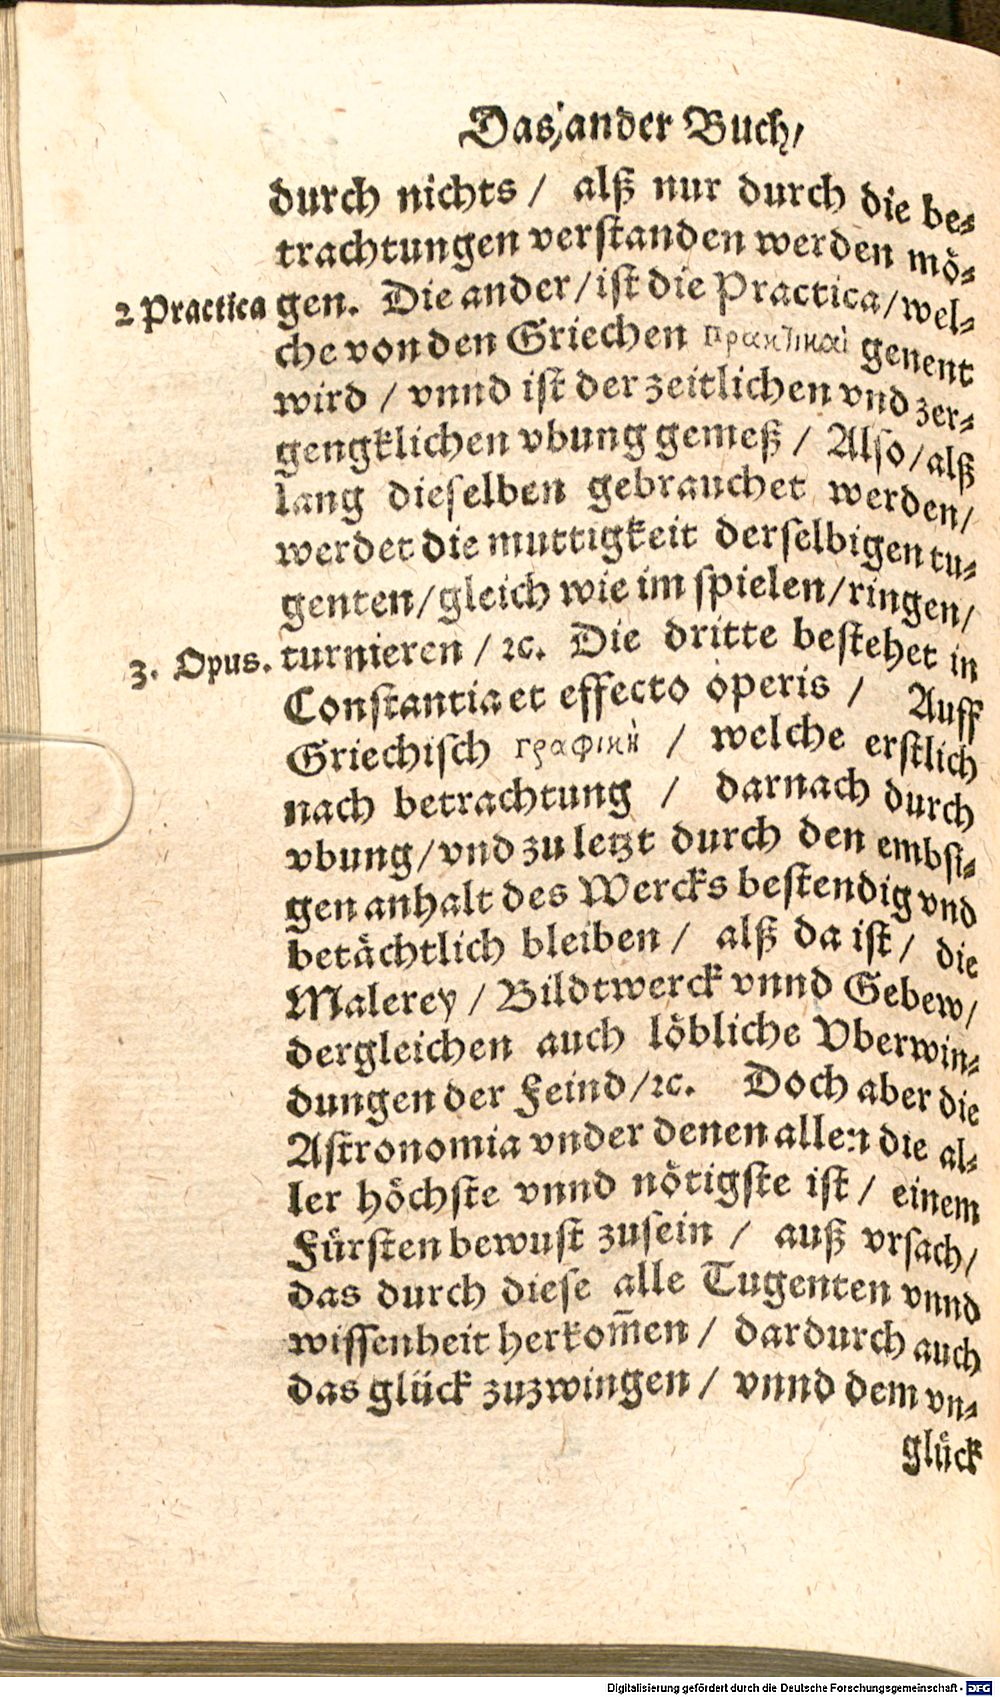 Das ander Buch/
durch nichts / alß nur durch die be-
trachtungen verstanden werden mö-
2 Practica
gen. Die ander/ist die Practica/wel-
che von den Griechen genent
wird / vnnd ist der zeitlichen vnd zer-
gengklichen vbung gemeß / Also/alß
lang dieselben gebrauchet werden/
werdet die muttigkeit derselbigen tu-
genten/gleich wie im spielen/ringen/
3. Opus.
turnieren / ꝛc. Die dritte bestehet in
Constantia et effecto operis / Auff
Griechisch γραφικὴ / welche erstlich
nach betrachtung / darnach durch
vbung/vnd zu letzt durch den embsi-
gen anhalt des Wercks bestendig vnd
betächtlich bleiben / alß da ist/ die
Malerey / Bildtwerck vnnd Gebew/
dergleichen auch löbliche Vberwin-
dungen der Feind/ꝛc. Doch aber die
Astronomia vnder denen allen die al-
ler höchste vnnd nötigste ist / einem
Fürsten bewust zusein / auß vrsach/
das durch diese alle Tugenten vnnd
wissenheit herkom̄en / dardurch auch
das glück zuzwingen / vnnd dem vn-
glück
Digitalisierung gefördert durch die Deutsche Forschungsgemeinschaft - DFG